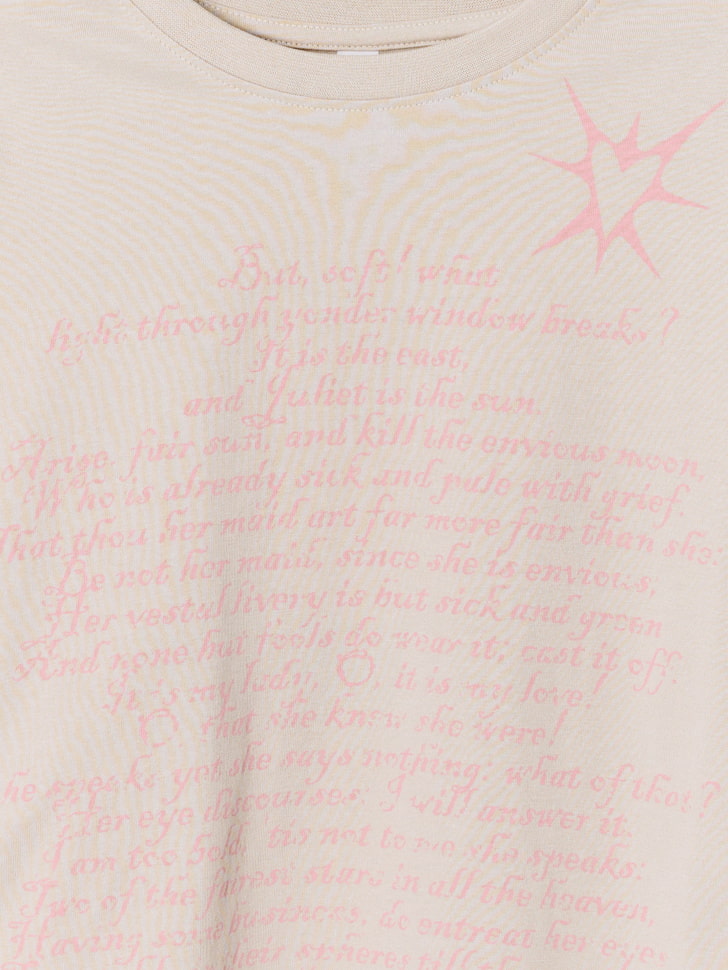 But, soft! what
light through yonder window breaks?
It is the east,
and Juliet is the sun.
Arise, fair sun, and kill the envious moon,
Who is already sick and pale with grief,
That thou her maid art far more fair than she:
Be not her maid, since she is envious,
Her vestal livery is but sick and green
And none but fools do wear it; cast it off.
It is my lady, O, it is my love!
O, that she knew she were!
he speaks yet she says nothing: what of that?
Her eye discourses; I will answer it.
I am too bold, tis not to me she speaks:
Two of the fairest stars in all the heaven,
Having some business, do entreat her eyes
their spheres till